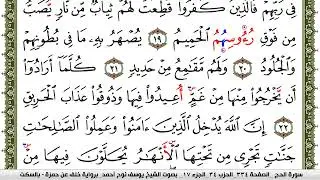 فِى رَبِّهِمْ فَٱلَّذِينَ كَفَرُوا۟ قُطِّعَتْ لَهُمْ ثِيَابٌ مِّن نَّارٍ يُصَبُّ
مِن فَوْقِ رُءُوسِهِمُ ٱلْحَمِيمُ ١٩ يُصْهَرُ بِهِۦ مَا فِى بُطُونِهِمْ
وَٱلْجُلُودُ ٢٠ وَلَهُم مَّقَـٰمِعُ مِنْ حَدِيدٍ ٢١ كُلَّمَآ أَرَادُوٓا۟
أَن يَخْرُجُوا۟ مِنْهَا مِنْ غَمٍّ أُعِيدُوا۟ فِيهَا وَذُوقُوا۟ عَذَابَ ٱلْحَرِيقِ
٢٢ إِنَّ ٱللَّهَ يُدْخِلُ ٱلَّذِينَ ءَامَنُوا۟ وَعَمِلُوا۟ ٱلصَّـٰلِحَـٰتِ
جَنَّـٰتٍ تَجْرِى مِن تَحْتِهَا ٱلْأَنْهَـٰرُ يُحَلَّوْنَ فِيهَا مِنْ
سورة الحج الصفحة ٣٣٤ الحزب ٣٤ الجزء ١٧ بصوت الشيخ يوسف نوح أحمد برواية خلف عن حمزة - بالسكت